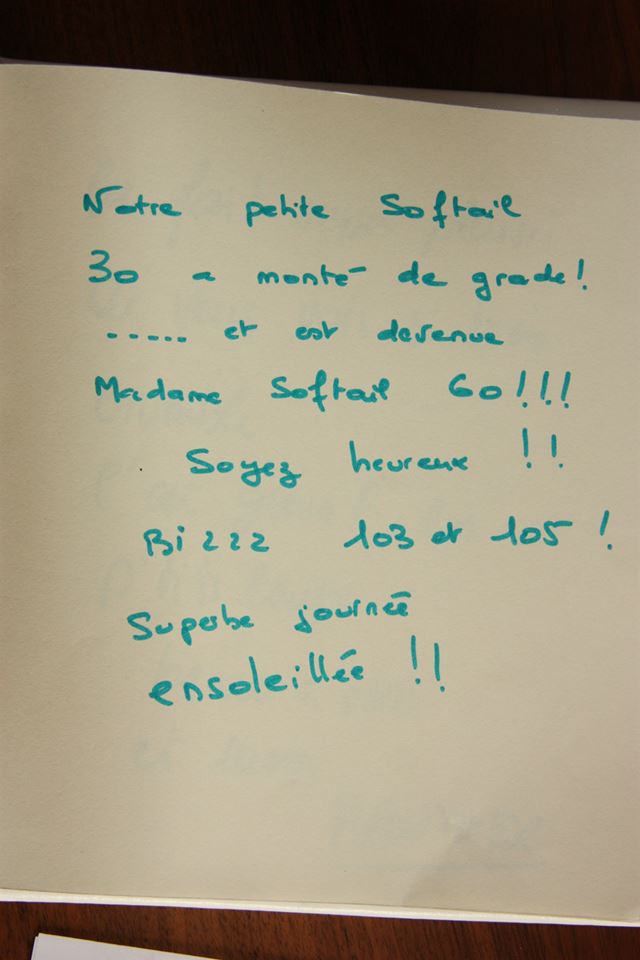 Notre petite Softail
30 a monté de grade!
..... et est devenue
Madame Softail 60!!!
Soyez heureux !!
Bizzz 103 et 105 !
Superbe journée
ensoleillée !!